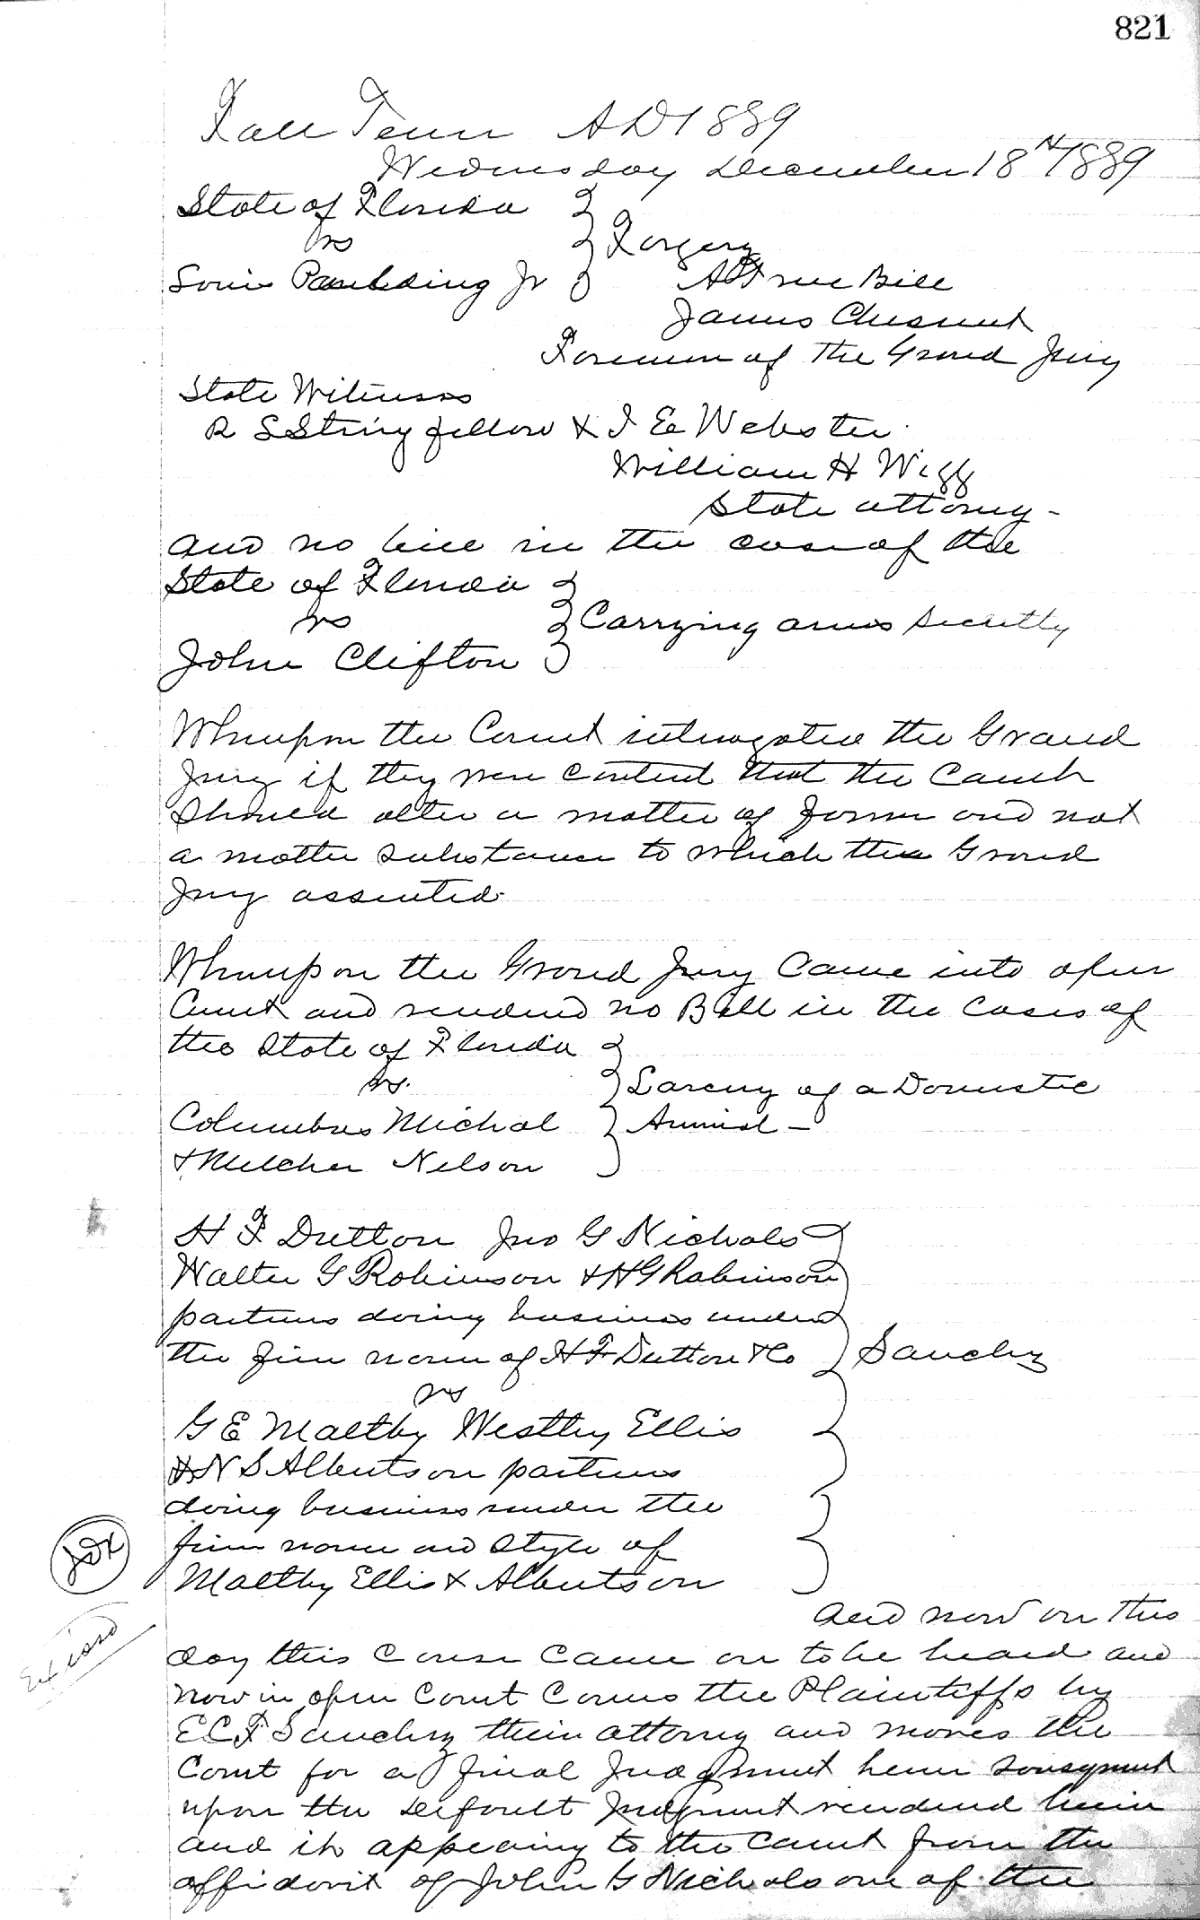 821
Fall Term AD 1889
Wednesday December 18th 1889
State of Florida
vs
Forgery
Louis Paulding Jr
A True Bill
James Chesnut
Foreman of the Grand Jury
State Witness
R S Stringfellow & I E Webster
William H Wigg
State attorney -
and no bill in the case of the
State of Florida
vs
Carrying arms secretly
John Clifton
Whereupon the Court interrogated the Grand
Jury if they were content that the Court
should alter a matter of form and not
a matter substance to which the Grand
Jury assented.
Whereupon the Grand Jury Came into open
Court and rendered no Bill in the Cases of
the State of Florida
vs.
Larceny of a Domestic
Columbus Michal
Animal -
& Melcher Nelson
H F Dutton Jno G Nichols
Walter G Robinson & H G Robinson
partners doing business under
the firm name of H F Dutton & Co
Sanchez
vs
G E Maltby Westley Ellis
& N S Albertson partners
doing business under the
firm name and style of
Maltby Ellis & Albertson
and now on this
day this Cause Came on to be heard and
now in open Court Comes the Plaintiffs by
E C F Sanchez their attorney and moves the
Court for a final Judgment herein
upon the default Judgment rendered herein
and it appearing to the Court from the
affidavit of John G Nichols one of the